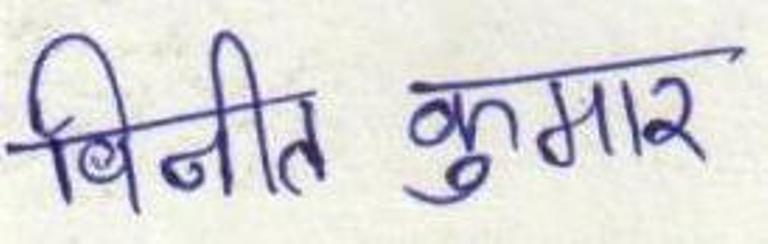 विनीत कुमार